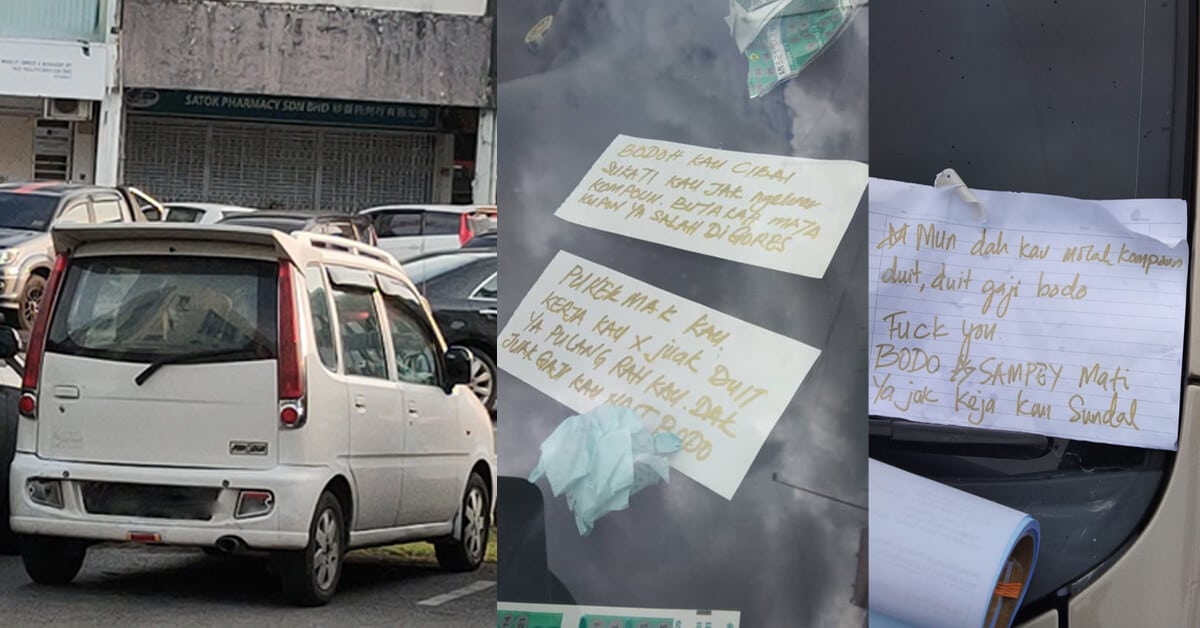 SATOK PHARMACY SDN BHD
BODOH KAU CIBAI
SUKATI KAU JAK ngeluar
KOMPOUN. BUTA KAH MATA
KUPON YA SALAH DI GORES
PUKEK MAK KAU
KERJA KAU X JUAK DUIT
YA PULANG RAH KAU. DAK
JUAK GAJI KAU NAIT BODO
Mun dah kau molah kompaun
duit, duit gaji bodo
Fuck you
BODO SAMPEY Mati
Ya jak keja kau Sundal